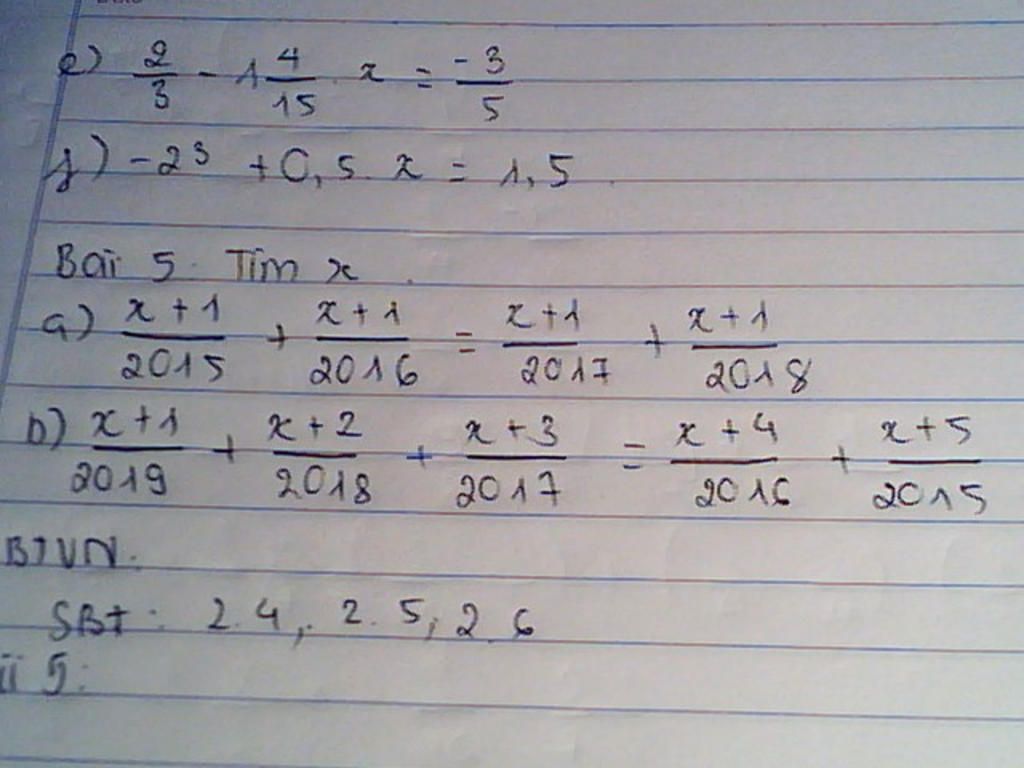 e) 2/3 - 1 4/15 . x = -3/5
f) -2³ + 0,5 . x = 1,5 .
Bài 5. Tìm x .
a) x+1/2015 + x+1/2016 = x+1/2017 + x+1/2018
b) x+1/2019 + x+2/2018 + x+3/2017 = x+4/2016 + x+5/2015
BTVN.
SBT : 2.4, 2.5, 2.6
5: